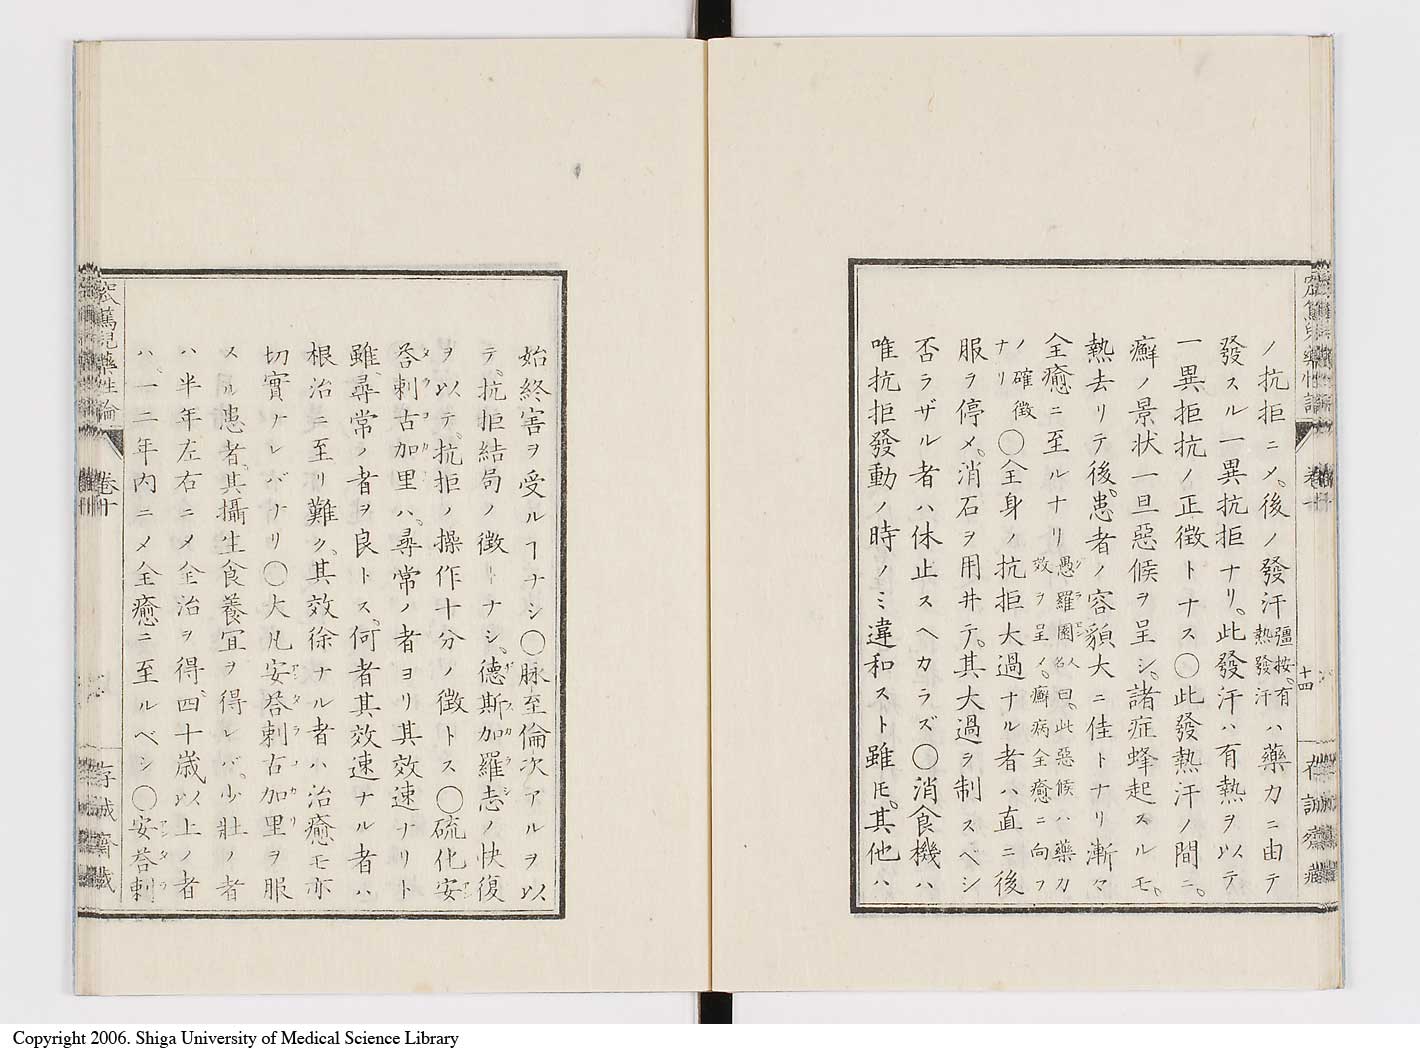 ノ抗拒ニメ、後ノ發汗彊按、有熱發汗ハ藥力ニ由テ
發スル一異抗拒ナリ、此發汗ハ有熱ヲ以テ
一異拒抗ノ正徴トナス〇此發熱汗ノ間ニ、
癬ノ景状一旦惡候ヲ呈シ、諸症蜂起スルモ、
熱去リテ後、患者ノ容貌大ニ佳トナリ漸々
全癒ニ至ルナリ愚羅園人名曰、此惡候ハ藥力效ヲ呈ノ、癬病全癒ニ向フ
ノ確徴ナリ〇全身ノ抗拒大過ナル者ハ直ニ後
服ヲ停メ、消石ヲ用井テ、其大過ヲ制スベシ
否ラザル者ハ休止スヘカラズ〇消食機ハ
唯抗拒發動ノ時ノミ違和スト雖𪜈、其他ハ
十四
始終害ヲ受ルヿナシ〇脉至倫次アルヲ以
テ、抗拒結局ノ徴トナシ、德斯加羅志ノ快復
ヲ以テ、抗拒ノ操作十分ノ徴トス〇硫化安
荅刺古加里ハ、尋常ノ者ヨリ其效速ナリト
雖、尋常ノ者ヲ良トス、何者其效速ナル者ハ
根治ニ至リ難ク、其效徐ナル者ハ治癒モ亦
切實ナレバナリ〇大凡安荅刺古加里ヲ服
スル患者、其攝生食養宜ヲ得レバ、少壯ノ者
ハ半年左右ニメ全治ヲ得、四十歳以上ノ者
ハ、一二年内ニメ全癒ニ至ルベシ〇安荅刺
卷十
Copyright 2006. Shiga University of Medical Science Library